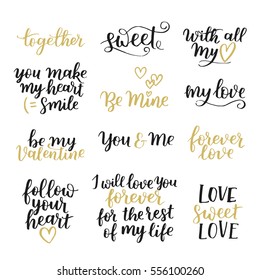 together
sweet
with all
my
you make
my heart
(= smile
Be Mine
my love
be my
Valentine
You & Me
forever
love
follow
your
heart
I will love you
forever
for the rest
of my life
LOVE
sweet
LOVE
shutterstock.com · 556100260